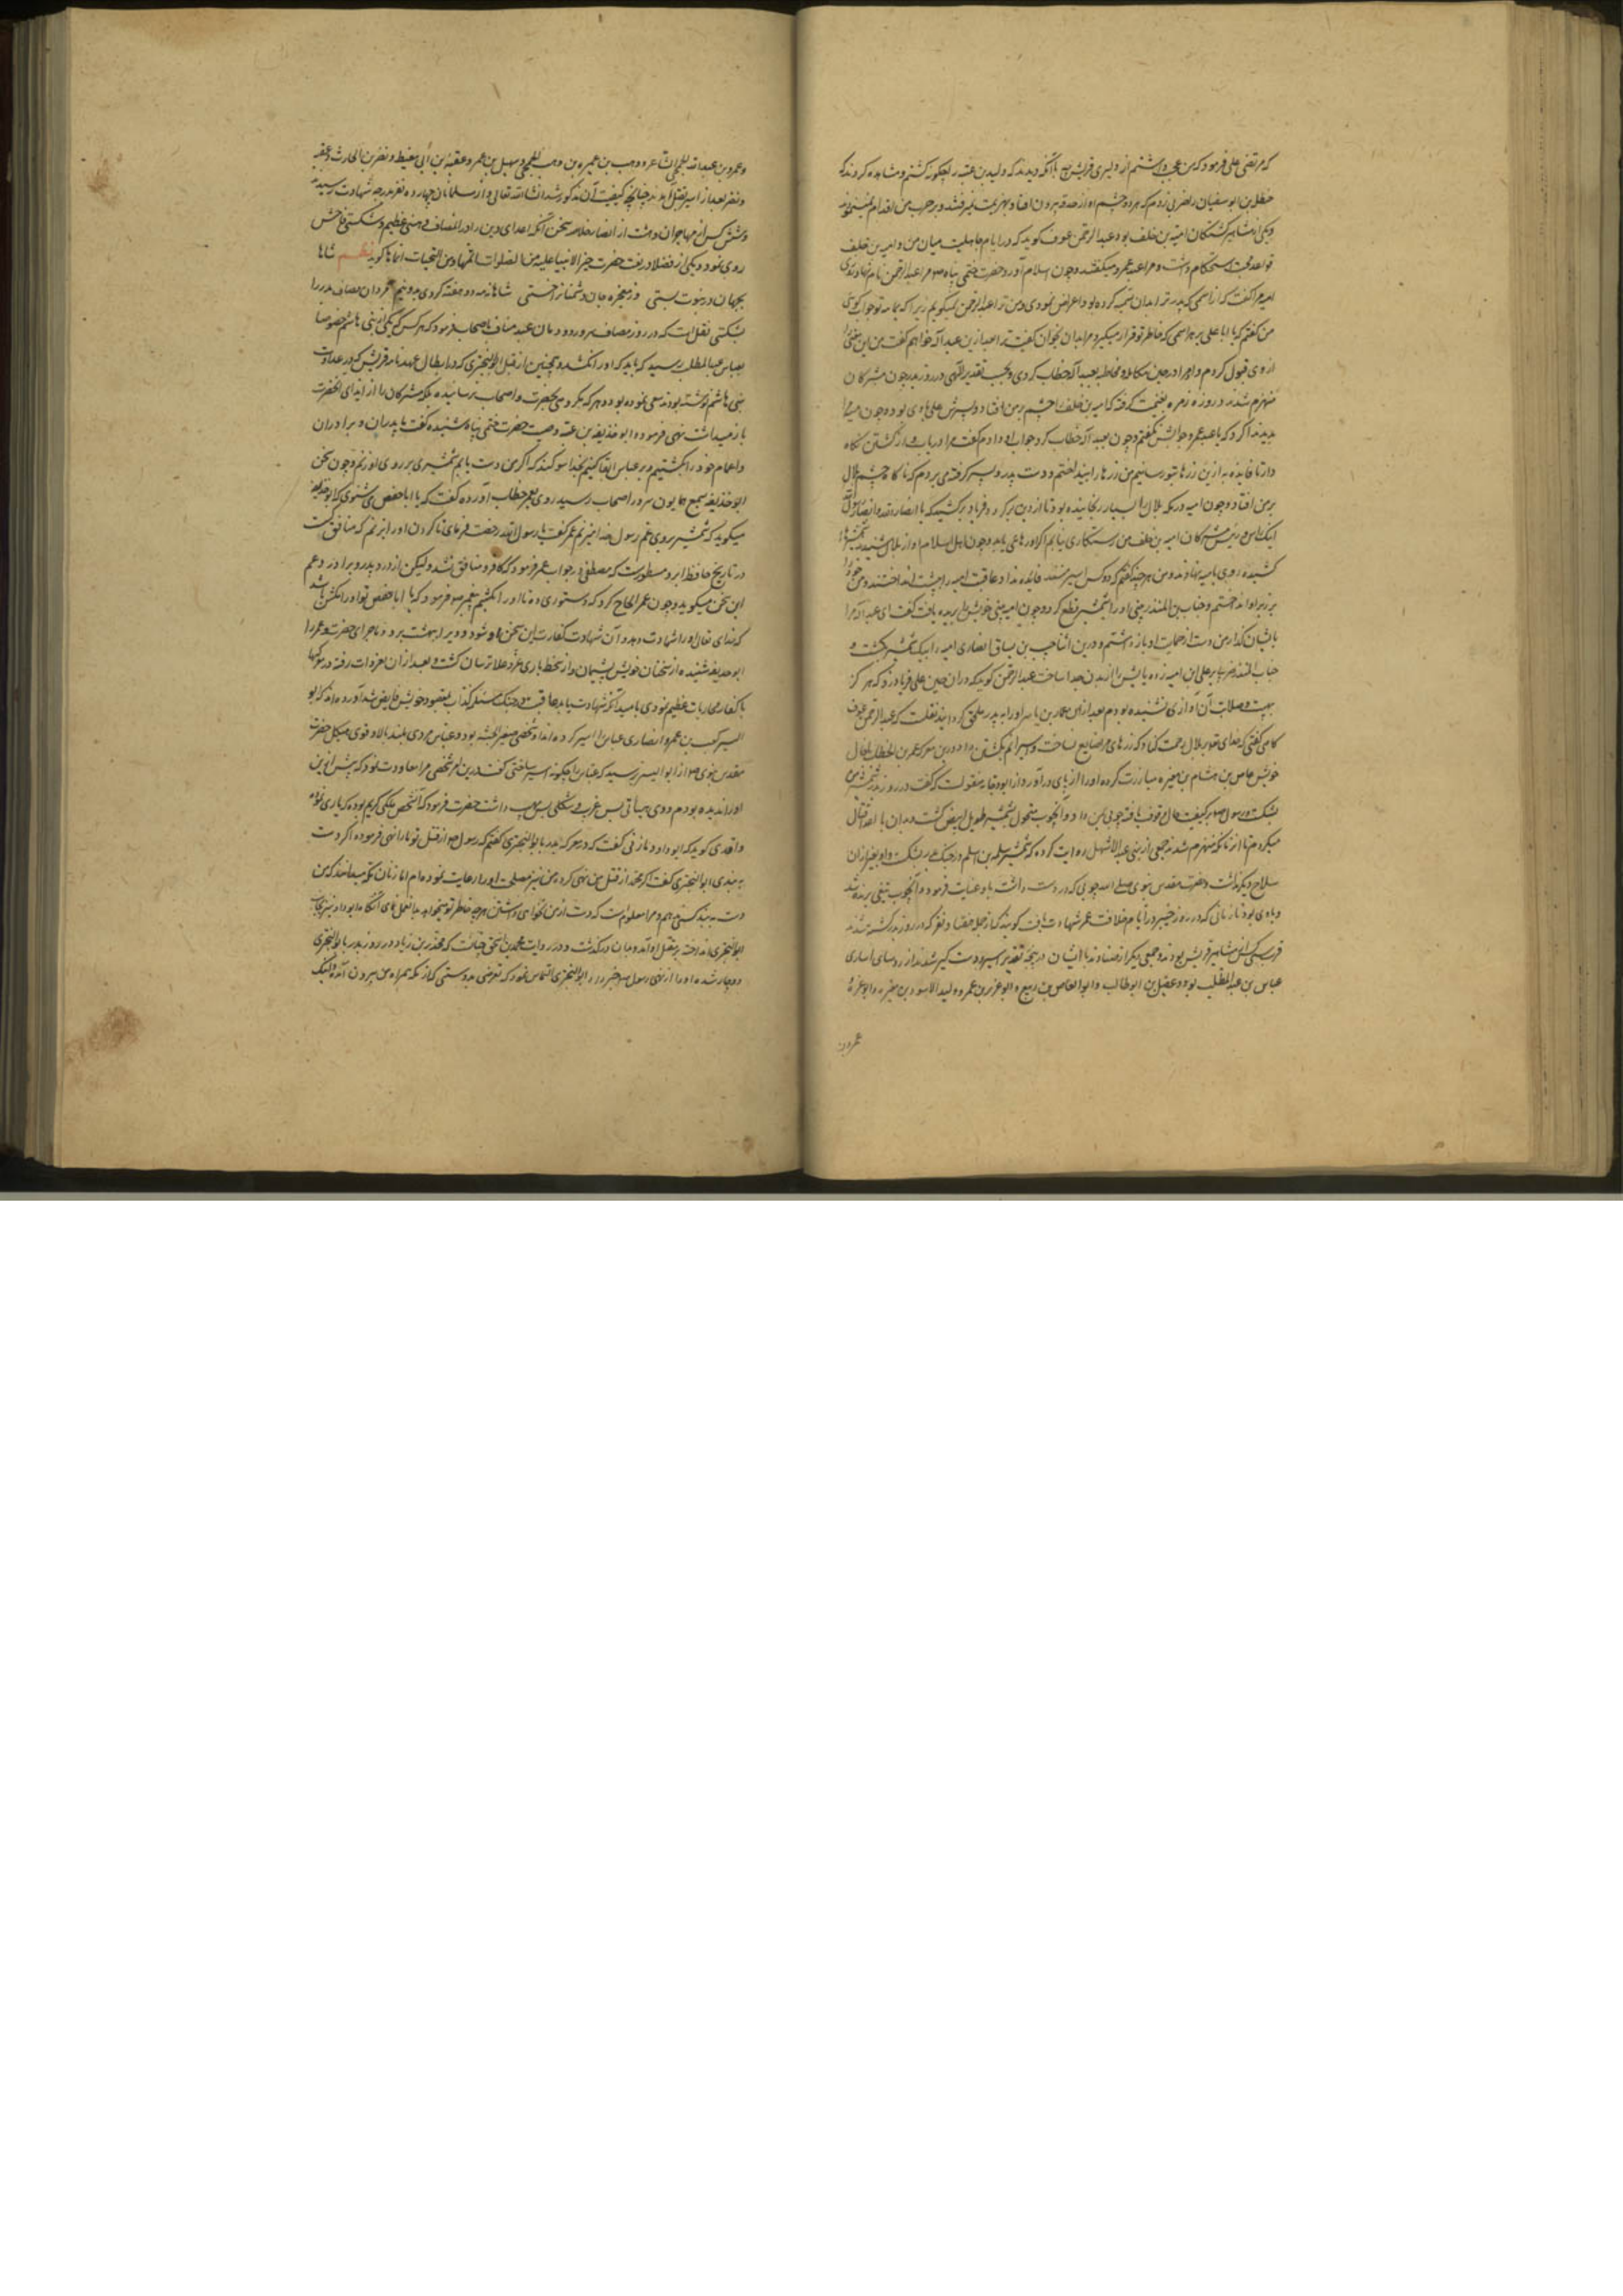 که مرتضی علی فرمود که من عجب داشتم از دلیری قریش با آنکه دیدند که ولید بن عتبه را چگونه کشتم و مشاهده کردند که
حنظله بن ابوسفیان را ضربی زدم که هر دو چشم او از حدقه بیرون افتاد
و یکی از مشاهیر کشتگان امیه بن خلف بود عبدالرحمن عوف گوید که در ایام جاهلیت میان من و امیه بن خلف
قواعد محبت استحکام داشت و مرا عبد عمرو میگفتند و چون اسلام آوردم حضرت ختمی پناه مرا عبدالرحمن نام نهاد
امیه مرا گفت که از اسمی که پدر ترا بدان تسمیه کرده بود اعراض نمودی و من ترا عبدالرحمن نمیگویم زیرا که
من گفتم که یا ابا علی بهر اسمی که خاطر تو قرار میگیرد مرا بدان بخوان گفت ترا بعد ازین عبد الآله خواهم گفت من این معنی را
از وی قبول کردم و او مرا در حین مکالمه و مخاطبه بعبد الآله خطاب کردی و بحسب تقدیر الهی در روز بدر چون مشرکان
منهزم شدند و من دو زره بغنیمت گرفته که امیه بن خلف را چشم بر من افتاد و پسرش علی با وی بود و چون مرا
بدید ندا کرد که یا عبد عمرو جوابش نگفتم و چون بعبد الآله خطاب کرد جواب او دادم گفت مرا دریاب و از کشتن نگاه
دار تا فایده به ازین زرها بتو رسانیم من زرها را بینداختم و دست پدر و پسر گرفته می بردم که ناگاه چشم بلال
بر من افتاد و چون امیه در مکه بلال را بسیار رنجانیده بود تا از دین برگردد فریاد برکشید که یا انصار الله و انصار رسول الله
اینک راس و رئیس مشرکان امیه بن خلف من رستگاری نیابم اگر او رهایی یابد و چون اهل اسلام آواز بلال شنیدند شمشیرها
کشیده روی بامیه نهادند و من هر چند گفتم که دو کس اسیر منند فایده نداد و عاقبت امیه را بپشت انداختند و من خود را
بر زبر او انداختم و حباب بن المنذر بینی او را بشمشیر قطع کرد و چون امیه بینی خویش را بریده یافت گفت ای عبد الآله مرا
بایشان گذار من دست از حمایت او باز داشتم و درین اثنا حبیب بن یساف انصاری امیه را بیک شمشیر بکشت و
حباب المنذر ضربتی بر علی ابن امیه زده پایش را از بدن جدا ساخت عبدالرحمن گوید که در آن حین علی فریاد زد که هرگز
بهیبت و صلابت آن آوازی نشنیده بودم بعد از آن عمار بن یاسر او را به پدر ملحق گردانید نقلست که عبدالرحمن عوف
گاهی گفتی که خدای تعالی بر بلال رحمت کناد که زرهای مرا ضایع ساخت و اسیرانم بکشتن داد و درین معرکه عمر بن الخطاب بخال
خویش عاص بن هشام بن مغیره مبارزت کرده او را از پای درآورد و از ابودجانه منقولست که گفت در روز بدر شمشیر من
بشکست و رسول بر کیفیت حال وقوف یافته چوبی بمن داد و آن چوب متحول بشمشیر طویل ابیض گشت و بدان با اعدا قتال
میکردم تا آن زمان که منهزم شدند جمعی از بنی عبد الاشهل روایت کرده که شمشیر سلمه بن اسلم در جنگ بدر بشکست و او بغیر از آن
سلاح دیگر نداشت حضرت مقدس نبوی صلی الله چوبی که در دست داشت باو عنایت فرموده آن چوب تیغی برنده شد
و با وی بود تا زمانی که در روز خیبر در ایام خلافت عمر شهادت یافت گویند که از جمله هفتاد نفر که در روز بدر کشته شدند
قریب سی کس از مشاهیر قریش بودند و جمعی دیگر از صنادید با ایشان در پنجه تقدیر اسیر و دست گیر شدند از روسای اساری
عباس بن عبدالمطلب بود و عقیل بن ابوطالب و ابوالعاص بن ربیع و ابوعزیز بن عمیر و ولید الاسود بن مغیره و ابوعزه
عمرو بن
و عمرو بن عبدالله الجمحی الشاعر و وهب بن عمیر بن وهب الجمحی و سهیل بن عمرو و عقبه بن ابی معیط و نضر بن الحارث و عقبه
و نضر بعد از اسیر بقتل آمدند چنانچه کیفیت آن مذکور شد انشاء الله تعالی و از مسلمانان چهارده نفر بدرجه شهادت رسیدند
و شش کس از مهاجران و هشت از انصار خلاصه سخن آنکه اعدای دین را در آن مصاف وهنی عظیم و شکستی فاحش
روی نمود و یکی از فضلا در نعت حضرت خیر الانبیا علیه من الصلوات اتمها و من التحیات انماها گوید نظم شاها
بجهان در نبوت بستی وز معجزه جان دشمنان خستی شاها مه دو هفته کردی بدو نیم گردان مصاف بدر را
بشکستی نقل است که در روز مصاف سرور دودمان عبد مناف باصحاب فرمود که هر کس که یکی از بنی هاشم خصوصا
بعباس عبدالمطلب رسید که باید که او را نکشد و همچنین از قتل ابوالبختری که در ابطال عهدنامه قریش که در عداوت
بنی هاشم نوشته بودند سعی نموده بود و هرگز مکروهی بحضرت و اصحاب نرسانیده بلکه مشرکان را از ایذای آنحضرت
باز میداشت نهی فرمود و ابو حذیفه بن عتبه وصیت حضرت ختمی پناه شنیده گفت ما پدران و برادران
و اعمام خود را بکشتیم و بر عباس ابقا کنیم بخدا سوگند که اگر من دست یابم شمشیری بر روی او زنم و چون سخن
ابوحذیفه بسمع همایون سرور اصحاب رسید روی بعمر خطاب آورده گفت که یا ابا حفص می شنوی که ابوحذیفه
میگوید که شمشیر بر روی عم رسول خدا میزنم عمر گفت یا رسول الله رخصت فرمای تا گردن او را بزنم که منافق است
در تاریخ حافظ ابرو مسطورست که مصطفی در جواب عمر فرمود که کافر و منافق نشد ولیکن از درد پدر و برادر و عم
این سخن میگوید و چون عمر الحاح کرد که دستوری ده تا او را بکشم پیغمبر فرمود که یا ابا حفص تو او را مکش باشد
که خدای تعالی او را شهادت دهد و آن شهادت کفارت این سخن او شود و ویرا بهشت برد و ماجرای حضرت و عمر را
ابوحذیفه شنیده از سخنان خویش پشیمان و از سخط باری عز و علا ترسان گشت و بعد از آن بغزوات رفته در معرکها
با کفار محاربات عظیم نمودی بامید آنکه شهادت یابد عاقبت در جنگ مسیلمه کذاب بمقصود خویش فایض شد آورده اند که ابو
الیسر کعب بن عمرو انصاری عباس را اسیر کرده اند او شخصی صغیر الجثه بود و عباس مردی بلند بالا و قوی هیکل حضرت
مقدس نبوی از ابو الیسر پرسید که عباس را چگونه اسیر ساختی گفت درین امر شخصی مرا معاونت نمود که پیش ازین
او را ندیده بودم و وی هیأتی بس غریب و شکلی بس عجیب داشت حضرت فرمود که آن شخص ملکی کریم بوده که یاری تو نموده
واقدی گوید که ابو داود مازنی گفت که در معرکه بدر با ابوالبختری گفتم که رسول از قتل تو ما را نهی فرموده اگر دست
به بندی ابوالبختری گفت اگر محمد از قتل من نهی کرده من نیز مصلحت او را رعایت نموده ام اما زنان مکه میدانند که من
ابوالبختری انداخته بر مقتل او آمد و جان در گذشت و در روایت محمد بن اسحق چنانست که مجذر بن زیاد در روز بدر با ابوالبختری
دوچار شده او را از نهی رسول خبر داد ابوالبختری التماس نمود که تعرض بدوستی که از مکه همراه من بیرون آمده